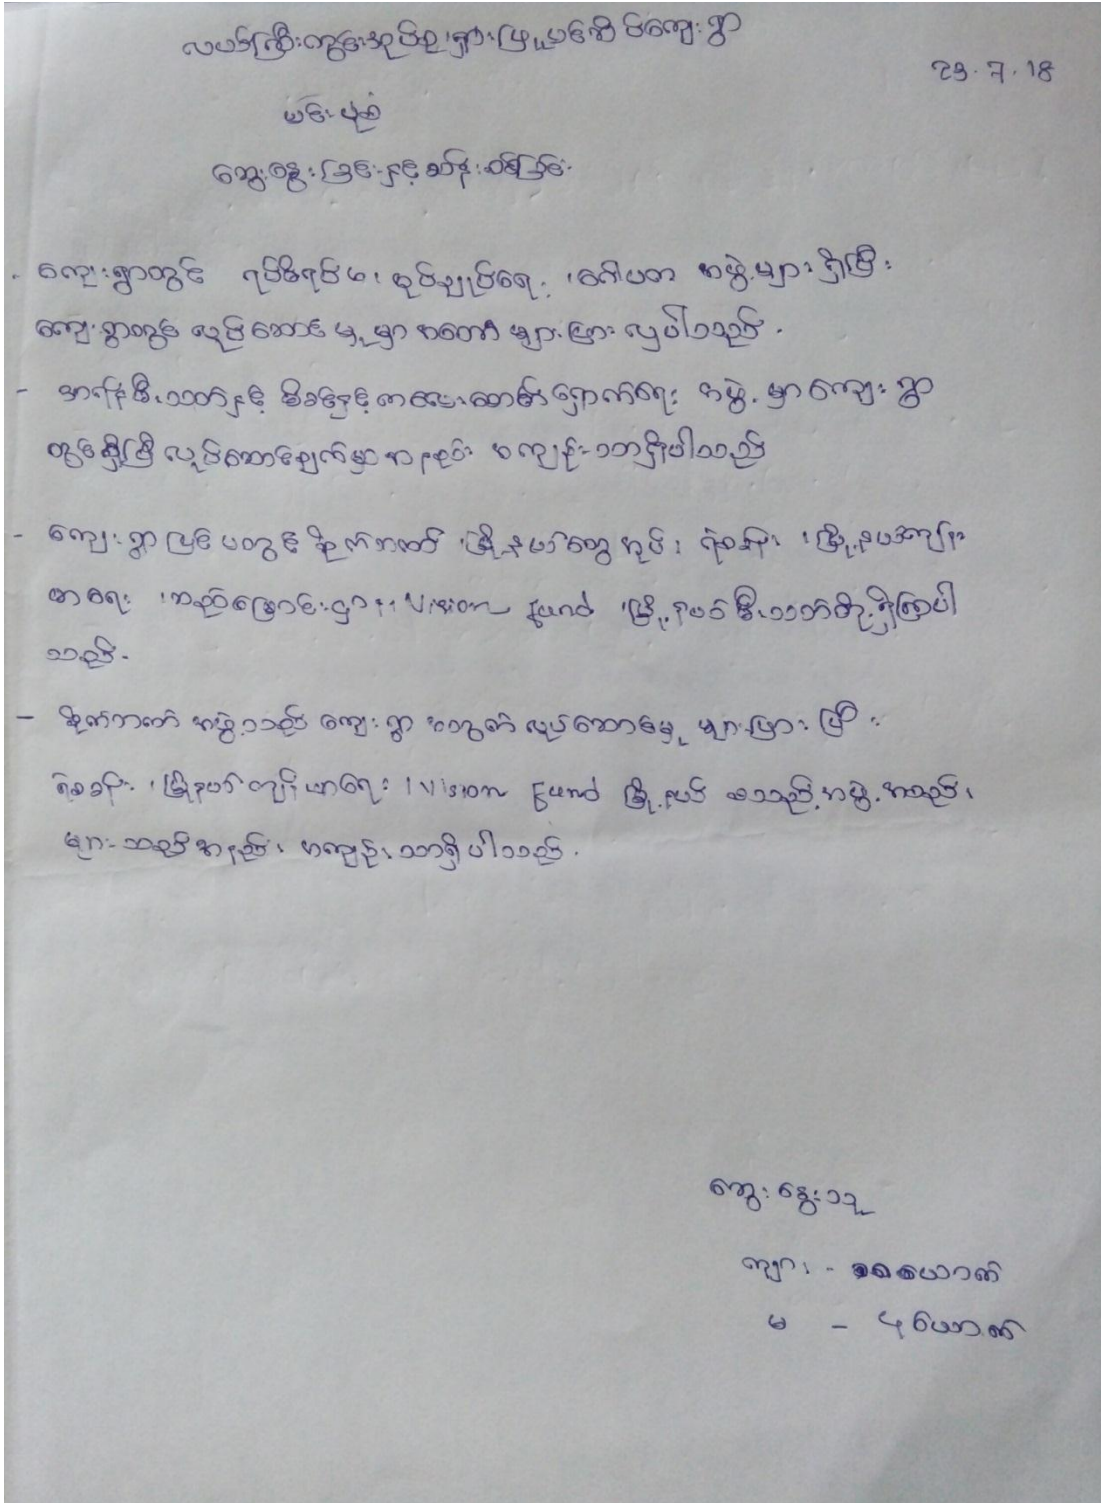 လယ်ကြီးကွင်းအုပ်စု၊ရှားဖြူပင်ဆိပ်ကျေးရွာ
23.7.18
ပန်းပုဆံ
ဆွေးနွေးခြင်းနှင့်ဆန်းစစ်ခြင်း
- ကျေးရွာတွင် ရပ်မိရပ်ဖ၊ အုပ်ချုပ်ရေး၊ ဂေါပက အဖွဲ့များရှိပြီး
ကျေးရွာတွင် လုပ်ဆောင်မှုမှာ အတော်များများလုပ်ပါသည်.
- အရံမီးသတ်နှင့် မိခင်နှင့်ကလေးစောင့်ရှောက်ရေး အဖွဲ့မှာကျေးရွာ
တွင်ရှိပြီ လုပ်ဆောင်ချက်မှာ အနည်း အကျဉ်းသာရှိပါသည်
- ကျေးရွာပြင်ပတွင် စိုက်ဘဏ် ၊မြို့နယ်ထွေအုပ်၊ ရဲစခန်း ၊မြို့နယ်ကျန်း
မာရေး ၊ဆည်မြောင်းဌာန၊ Vision Fund ၊မြို့နယ်မီးသတ်တို့ရှိကြပါ
သည်.
- စိုက်ဘဏ် အဖွဲ့သည် ကျေးရွာအတွက် လုပ်ဆောင်မှု များများပြီး
ရဲစခန်း ၊မြို့နယ်ကျန်းမာရေး ၊ Vision Fund မြို့နယ် စသည့်အဖွဲ့အစည်း
များသည်အနည်း အကျဉ်းသာရှိပါသည်.
ဆွေးနွေးသူ
ကျား - ယောက်
မ - ၄ယောက်